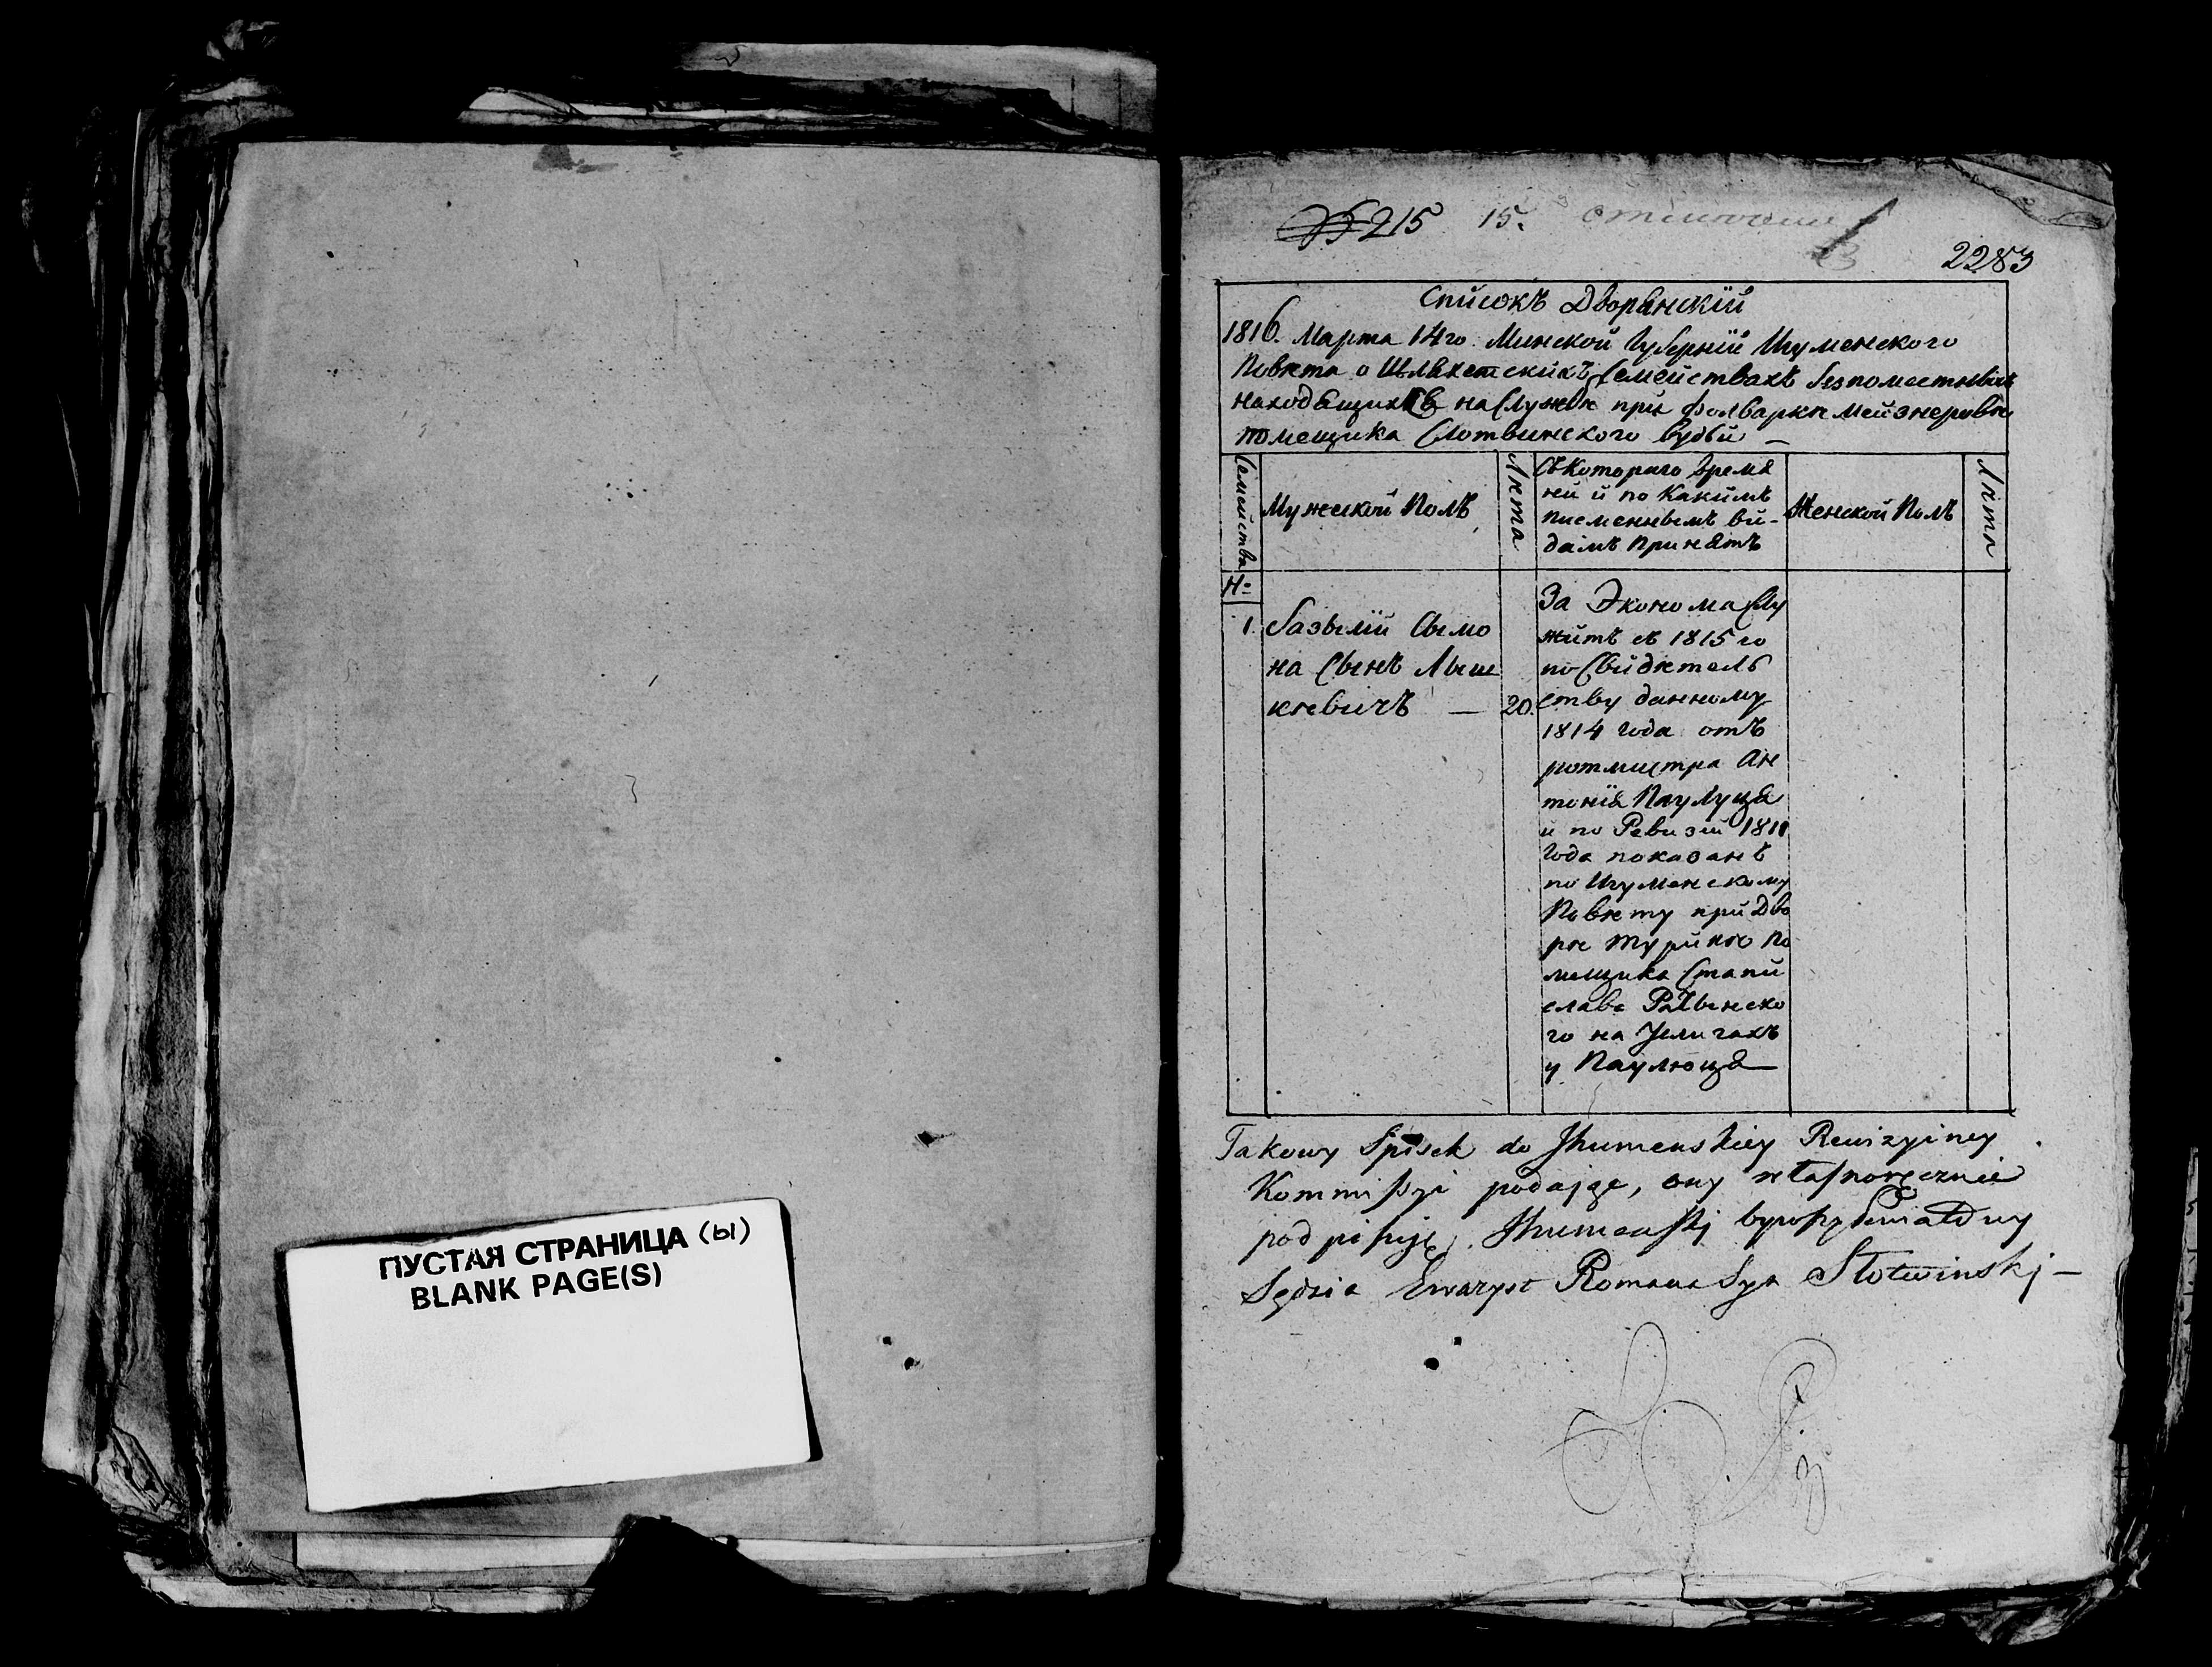 ПУСТАЯ СТРАНИЦА (ы)
BLANK PAGE(S)
№ 215 15.
2283
Списокъ Дворянскій
1816. Марта 14го Минской Губерніи Игуменского
Повѣта о Шляхетскихъ Семействахъ безпоместныхъ
находящихся на Службѣ при фолваркѣ
помещика Слотвинского Судьи —
Семейства
Мужеской Полъ
Лѣта
Съ Котораго время
ни и по Какимъ
писменнымъ ви-
дамъ Принятъ
Женской Полъ
Лѣта
Н:
1.
Базылій Сымо
на Сынъ Лыш
кѣвичъ —
20.
За Эконома Слу
житъ съ 1815 го
по Свидѣтель
ству данному
1814 года отъ
ротмистра Ан
тонія Паулуця
и по Ревизіи 1811
Года показанъ
по Игуменскому
Повѣту при Дво
рѣ Туринѣ По
мещика Стани
слава
го на
у Паулюця —
Takowy Spisek do Jhumenskiey Rewizyiney
Kommissyi podając, ony własnoręcznie
podpisuję. Jhumenskj
Sędzia Ewaryst Romana Syn Słotwinskj —